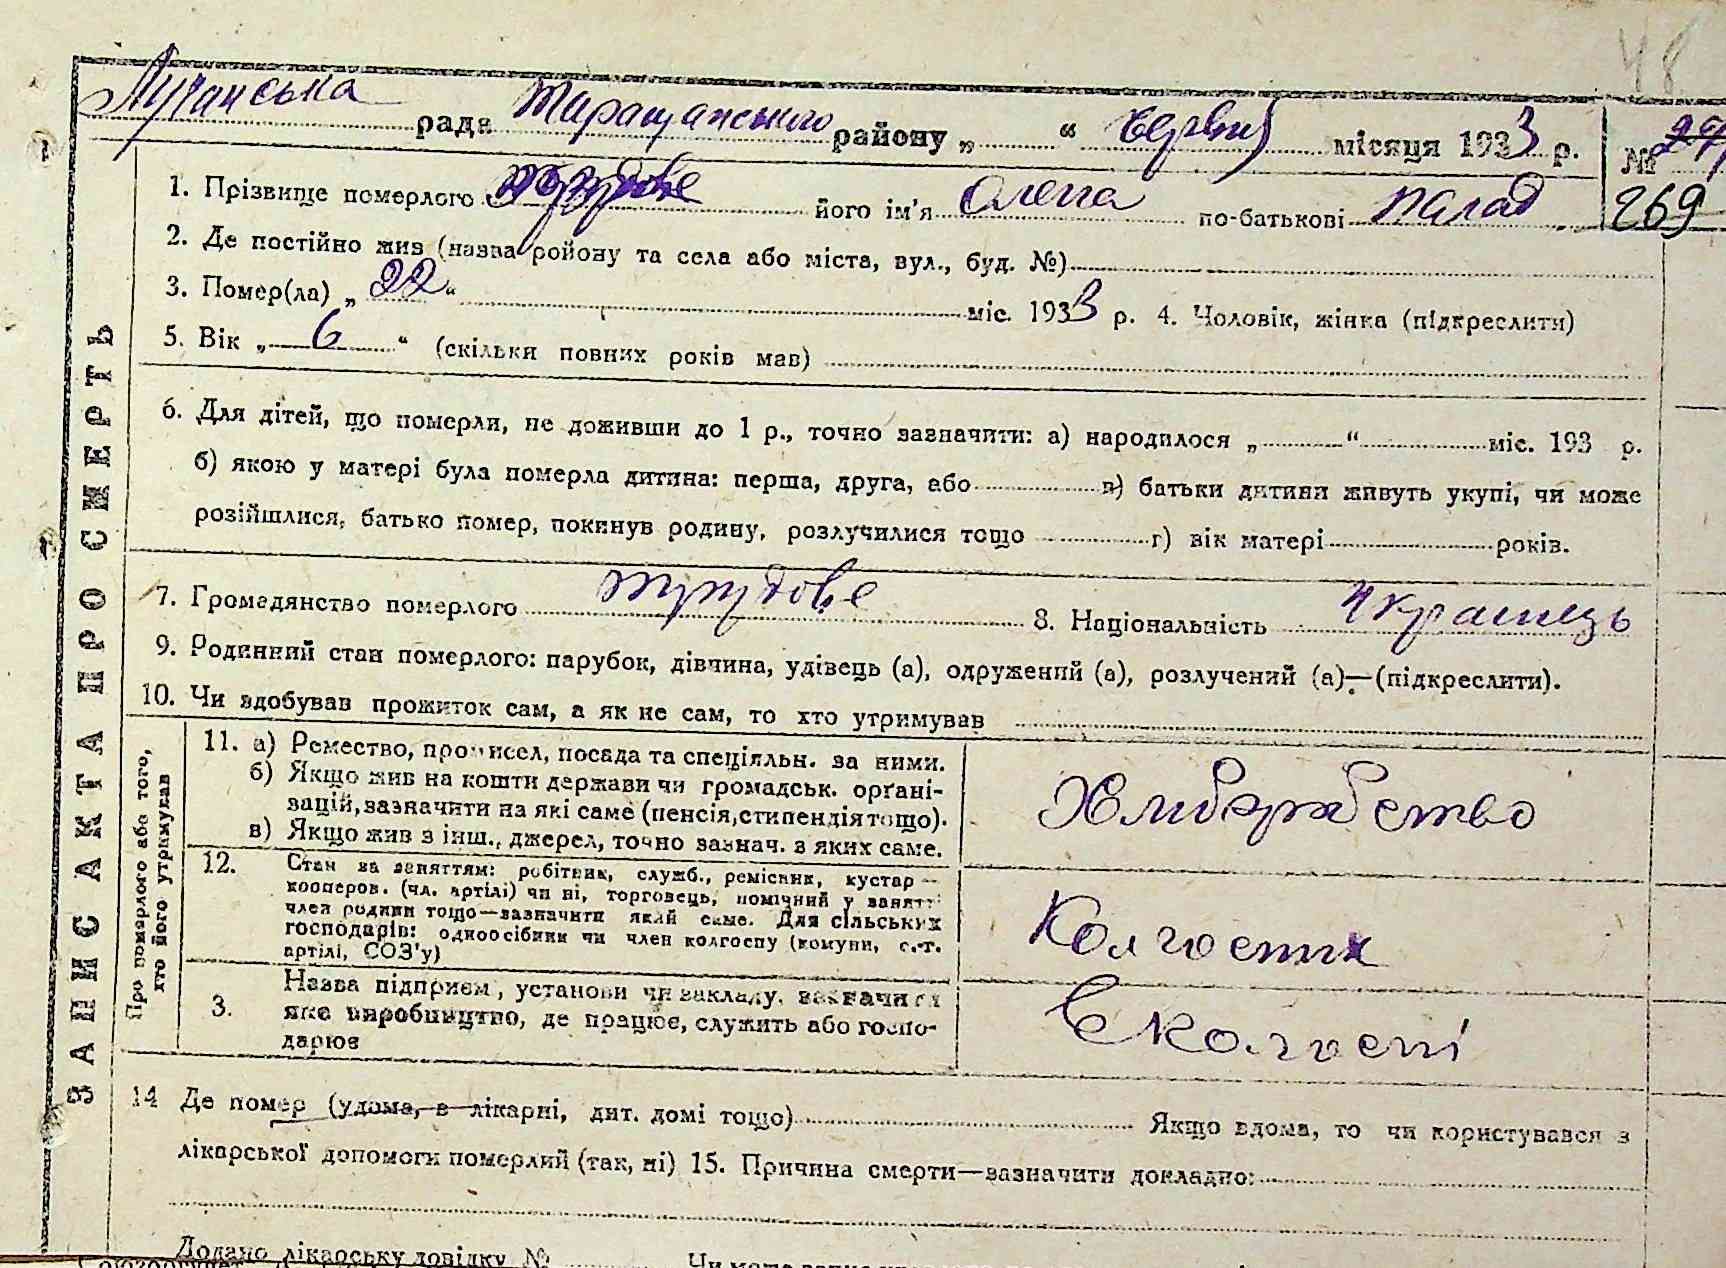 48
Лучанська рада Таращанського району „ “ червня місяця 1933 р. №
269
1. Прізвище померлого його ім'я Олена по-батькові Палад
2. Де постійно жив (назва ройону та села або міста, вул., буд. №)
3. Помер(ла) „ 22 “ міс. 1933 р. 4. Чоловік, жінка (підкреслити)
5. Вік „ 6 “ (скільки повних років мав)
6. Для дітей, що померли, не доживши до 1 р., точно зазначити: а) народилося „ “ міс. 193 р.
б) якою у матері була померла дитина: перша, друга, або в) батьки дитини живуть укупі, чи може
розійшлися, батько помер, покинув родину, розлучилися тощо г) вік матері років.
7. Громадянство померлого трудове 8. Національність Украінець
9. Родинний стан померлого: парубок, дівчина, удівець (а), одружений (а), розлучений (а)—(підкреслити).
10. Чи здобував прожиток сам, а як не сам, то хто утримував
ЗАПИС АКТА ПРО СМЕРТЬ
Про померлого або того,
хто його утримував
11. а) Ремество, промисел, посада та спеціяльн. за ними.
б) Якщо жив на кошти держави чи громадськ. орґані-
зацій, зазначити на які саме (пенсія, стипендія тощо).
в) Якщо жив з інш., джерел, точно зазнач. з яких саме.
Хлиборобство
12. Стан за заняттям: робітник, служб., ремісник, кустар—
кооперов. (чл. артілі) чи ні, торговець, помічний у занятт
член родини тощо—зазначити який саме. Для сільських
господарів: одноосібник чи член колгоспу (комуни, с.-г.
артілі, СОЗ'у)
Колгоспик
3. Назва підприєм, установи чи закладу, зазначити
яке виробництво, де працює, служить або госпо-
дарює
В колгоспі
14 Де помер (удома, в лікарні, дит. домі тощо) Якщо вдома, то чи користувався з
лікарської допомоги померлий (так, ні) 15. Причина смерти—зазначити докладно:
Додано лікарську довідку №